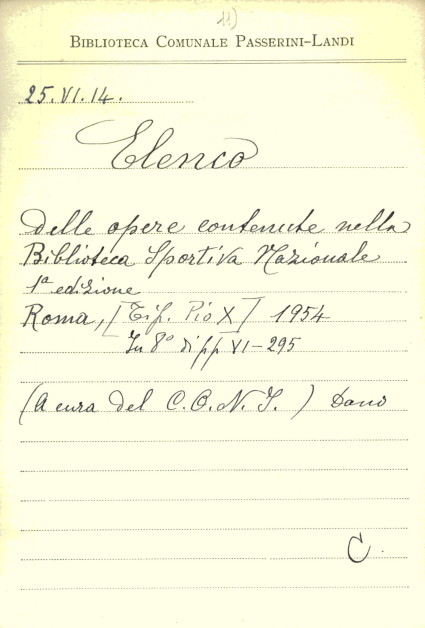 11)
BIBLIOTECA COMUNALE PASSERINI-LANDI
25.VI.14.
Elenco
delle opere contenute nella
Biblioteca Sportiva Nazionale
1ª edizione
Roma, [Tip. Pio X] 1954
In 8° di pp VI-295
(A cura del C.O.N.I.) Dono
C.